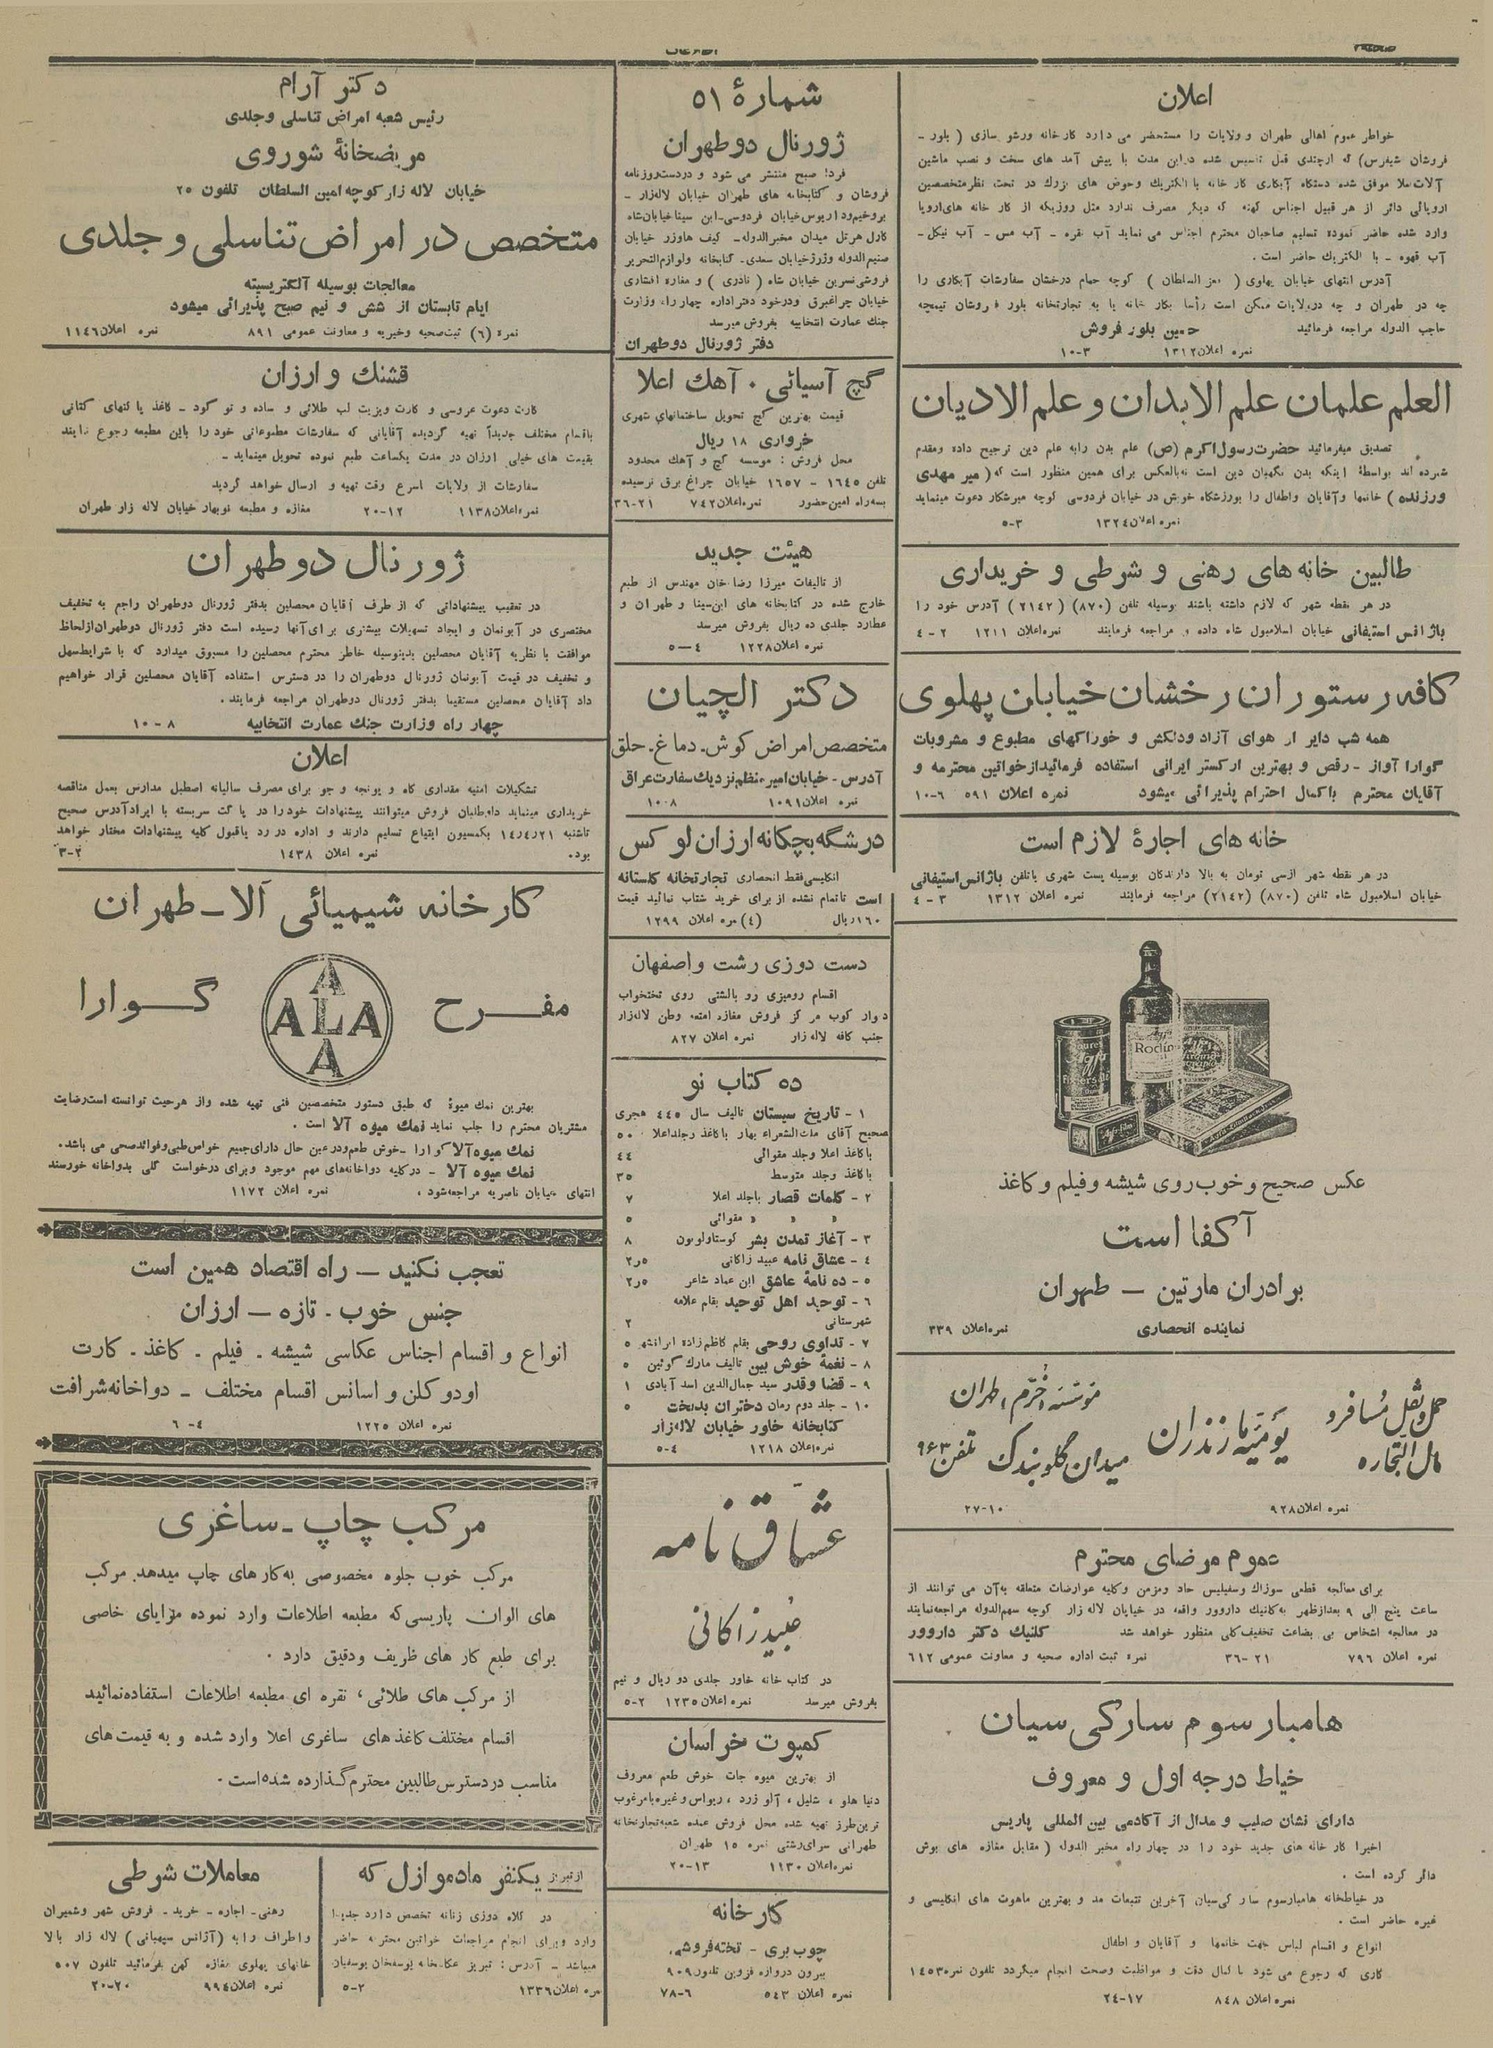 صفحه۲
اطلاعات
اعلان
خواطر عموم اهالی طهران و ولایات را مستحضر می دارد کارخانه ورشو سازی ( بلور -
فروشان شیفرس) که ازچندی قبل تأسیس شده دراین مدت با پیش آمد های سخت و نصب ماشین
آلات‌ملا موفق شده دستگاه آبکاری کارخانه با الکتریك وحوض های بزرك در تحت نظرمتخصصین
اروپائی دائر از هر قبیل اجناس کهنه که دیگر مصرف ندارد مثل روزیکه از کارخانه های‌اروپا
وارد شده حاضر نموده تسلیم صاحبان محترم اجناس می نماید آب نقره - آب مس - آب نیکل -
آب قهوه - با الکتریك حاضر است .
آدرس انتهای خیابان پهلوی ( معز السلطان ) کوچه حمام درخشان سفارشات آبکاری را
چه در طهران و چه درولایات ممکن است رأسا بکار خانه یا به تجارتخانه بلور فروشان تیمچه
حاجب الدوله مراجعه فرمائید حسین بلور فروش
نمره اعلان ۱۳۱۲ ۳-۱۰
العلم علمان علم الابدان و علم الادیان
تصدیق میفرمائید حضرت رسول اکرم (ص) علم بدن رابه علم دین ترجیح داده ومقدم
شمرده اند بواسطهٔ اینکه بدن نگهبان دین است نه‌بالعکس برای همین منظور است که ( میر مهدی
ورزنده ) خانمها وآقایان واطفال را بورزشگاه خوش در خیابان فردوسی کوچه میرشکار دعوت مینماید
نمره اعلان ۱۳۲۴ ۳-۵
طالبین خانه های رهنی و شرطی و خریداری
در هر نقطه شهر که لازم داشته باشند بوسیله تلفن (۸۷۰) (۲۱۴۲) آدرس خود را
باژانس استیفانی خیابان اسلامبول شاه داده و مراجعه فرمایند نمره اعلان ۱۲۱۱ ۲-۴
کافه رستوران رخشان خیابان پهلوی
همه شب دایر از هوای آزاد ودلکش و خوراکهای مطبوع و مشروبات
گوارا آواز - رقص و بهترین ارکستر ایرانی استفاده فرمائیدازخواتین محترمه و
آقایان محترم باکمال احترام پذیرائی میشود نمره اعلان ۵۹۱ ۶-۱۰
خانه های اجارهٔ لازم است
در هر نقطه شهر ازسی تومان به بالا دارندکان بوسیله پست شهری یاتلفن باژانس استیفانی
خیابان اسلامبول شاه تلفن (۸۷۰) (۲۱۴۲) مراجعه فرمایند نمره اعلان ۱۳۱۲ ۳-۴
Agfa
Rodinal
عکس صحیح و خوب روی شیشه و فیلم و کاغذ
آکفا است
برادران مارتین — طهران
نماینده انحصاری نمره‌اعلان ۳۳۹
حمل و نقل مسافر و
مال التجاره
یومیه مازندران
مؤسسه خرم طهران
میدان گلوبندک تلفن ۹۶۳
نمره اعلان ۹۲۸ ۱۰-۲۷
عموم مرضای محترم
برای معالجه قطعی سوزاك وسفیلیس حاد ومزمن وکلیه عوارضات متعلقه به‌آن می توانند از
ساعت پنج الی ۹ بعدازظهر به‌کلنیك داروور واقعه در خیابان لاله زار کوچه سهم‌الدوله مراجعه‌نمایند
در معالجه اشخاص بی بضاعت تخفیف‌کلی منظور خواهد شد کلنیك دکتر داروور
نمره اعلان ۷۹۶ ۲۱-۳۶ نمره ثبت اداره صحیه و معاونت عمومی ۶۱۲
هامبارسوم سارکی سیان
خیاط درجه اول و معروف
دارای نشان صلیب و مدال از آکادمی بین المللی پاریس
اخیرا کارخانه های جدید خود را در چهار راه مخبر الدوله ( مقابل مغازه های بوش
دائر کرده است .
در خیاطخانه هامبارسوم سارکی‌سیان آخرین تتبعات مد و بهترین ماهوت های انگلیسی و
غیره حاضر است .
انواع و اقسام لباس جهت خانمها و آقایان و اطفال
کاری که رجوع می شود با کمال دقت و مواظبت وصحت انجام میگردد تلفون نمره۱۴۵۳
نمره اعلان ۸۴۸ ۱۷-۲۴
شمارهٔ ۵۱
ژورنال دو طهران
فردا صبح منتشر می شود و دردست‌روزنامه
فروشان و کتابخانه های طهران خیابان لاله‌زار -
بروخیم‌وداریوس‌خیابان فردوسی-ابن سینا‌خیابان‌شاه
کارل هرتل میدان مخبرالدوله- کیف هاوزر خیابان
صنیع‌الدوله وژرژخیابان سعدی. کتابخانه ولوازم‌التحریر
فروشی‌نسرین خیابان شاه ( نادری ) و مغازه افشاری
خیابان چراغبرق ودرخود دفتراداره چهار راه وزارت
جنك عمارت انتخابیه بفروش میرسد
دفتر ژورنال دوطهران
گچ آسیائی . آهك اعلا
قیمت بهترین گچ تحویل ساختمانهای شهری
خرواری ۱۸ ریال
محل فروش : موسسه گچ و آهك محدود
تلفن ۱۶۴۵ - ۱۶۵۷ خیابان چراغ برق نرسیده
بسه‌راه امین‌حضور نمره‌اعلان ۷۴۲ ۲۱-۳۶
هیئت جدید
از تالیفات میرزا رضا خان مهندس از طبع
خارج شده در کتابخانه های ابن‌سینا و طهران و
عطارد جلدی ده ریال بفروش میرسد
نمره اعلان ۱۲۲۸ ۴-۵
دکتر الچیان
متخصص امراض گوش-دماغ-حلق
آدرس - خیابان‌امیر،نظم‌نزدیك‌سفارت‌عراق
نمره اعلان۱۰۹۱ ۸-۱۰
درشگه بچگانه ارزان لوکس
انگلیسی‌فقط انحصاری تجارتخانه گلستانه
است تاتمام نشده از برای خرید شتاب نمائید قیمت
۱۶۰ریال (۴)نمره اعلان ۱۲۹۹
دست دوزی رشت و اصفهان
اقسام رومیزی رو بالشتی روی تختخواب
دیوار کوب مرکز فروش مغازه امتعه وطن لاله‌زار
جنب کافه لاله زار نمره اعلان ۸۲۷
ده کتاب نو
۱ - تاریخ سیستان تالیف سال ۴۴۵ هجری
صحیح آقای ملك‌الشعراء بهار باکاغذ وجلداعلا ۵۰
باکاغذ اعلا وجلد مقوائی ۴۴
باکاغذ وجلد متوسط ۳۵
۲ - کلمات قصار باجلد اعلا ۷
« « « مقوائی ۵
۳ - آغاز تمدن بشر گوستاولوبون ۸
۴ - عشاق نامه عبید زاکانی ۲٫۵
۵ - ده نامهٔ عاشق ابن عماد شاعر ۲٫۵
۶ - توحید اهل توحید بقلم علامه
شهرستانی ۲
۷ - تداوی روحی بقلم کاظم‌زاده ایرانشهر ۵
۸ - نغمهٔ خوش بین تالیف مارك گوتین ۵
۹ - قضا وقدر سید جمال‌الدین اسد آبادی ۱
۱۰ - جلد دوم رمان دختران بدبخت ۵
کتابخانه خاور خیابان لاله‌زار
نمره‌اعلان ۱۲۱۸ ۴-۵
عشاق نامه
عبید زاکانی
در کتاب خانه خاور جلدی دو ریال و نیم
بفروش میرسد نمره اعلان ۱۲۳۵ ۲-۵
کمپوت خراسان
از بهترین میوه جات خوش طعم معروف
دنیا هلو ، شلیل ، آلو زرد ، ریواس و غیره بامرغوب
ترین‌طرز تهیه شده محل فروش عمده شعبه‌تجارتخانه
طهرانی سرای‌رشتی نمره ۱۵ طهران
نمره‌اعلان ۱۱۳۰ ۱۳-۲۰
کارخانه
چوب بری - تخته‌فروشی
بیرون دروازه قزوین تلفون ۹۰۹
نمره اعلان ۵۴۳ ۶-۷۸
دکتر آرام
رئیس شعبه امراض تناسلی و جلدی
مریضخانهٔ شوروی
خیابان لاله زار کوچه امین السلطان تلفون ۲۵
متخصص در امراض تناسلی و جلدی
معالجات بوسیله آلکتریسیته
ایام تابستان از شش و نیم صبح پذیرائی میشود
نمره (۶) ثبت‌صحیه وخیریه و معاونت عمومی ۸۹۱ نمره اعلان۱۱۴۶
قشنك و ارزان
کارت دعوت عروسی و کارت ویزیت لب طلائی و ساده و نو گود - کاغذ پاکتهای کتانی
باقسام مختلف جدیداً تهیه گردیده آقایانی که سفارشات مطبوعاتی خود را باین مطبعه رجوع نمایند
بقیمت های خیلی ارزان در مدت یکساعت طبع نموده تحویل مینماید -
سفارشات از ولایات اسرع وقت تهیه و ارسال خواهد گردید
نمره‌اعلان۱۱۳۸ ۱۲-۲۰ مغازه و مطبعه نوبهار خیابان لاله زار طهران
ژورنال دو طهران
در تعقیب پیشنهاداتی که از طرف آقایان محصلین بدفتر ژورنال دوطهران راجع به تخفیف
مختصری در آبونمان و ایجاد تسهیلات بیشتری برای‌آنها رسیده است دفتر ژورنال دوطهران‌ازلحاظ
موافقت با نظریه آقایان محصلین بدینوسیله خاطر محترم محصلین را مسبوق میدارد که با شرایط‌سهل
و تخفیف در قیمت آبونمان ژورنال دوطهران را در دسترس استفاده آقایان محصلین قرار خواهیم
داد آقایان محصلین مستقیما بدفتر ژورنال دوطهران مراجعه فرمایند.
چهار راه وزارت جنك عمارت انتخابیه ۸-۱۰
اعلان
تشکیلات امنیه مقداری کاه و یونجه و جو برای مصرف سالیانه اصطبل مدارس بعمل مناقصه
خریداری مینماید داوطلبان فروش میتوانند پیشنهادات خود‌را در پاکت سربسته با ایرادآدرس صحیح
تاشنبه ۱۴ر۴ر۲۱ بکمسیون ابتیاع تسلیم دارند و اداره در رد یاقبول کلیه پیشنهادات مختار خواهد
بود. نمره اعلان ۱۴۳۸ ۲-۳
کارخانه شیمیائی آلا - طهران
مفرح ALA گوارا
بهترین نمك میوهٔ که طبق دستور متخصصین فنی تهیه شده واز هرحیث توانسته است‌رضایت
مشتریان محترم را جلب نماید نمك میوه آلا است .
نمك میوه‌آلا گوارا -خوش طعم‌ودرعین حال دارای‌جمیع خواص‌طبی‌وفوائدصحی می باشد.
نمك میوه آلا - درکلیه دواخانه‌های مهم موجود وبرای درخواست کلی بدواخانه خورسند
انتهای خیابان ناصریه مراجعه‌شود ، نمره اعلان ۱۱۷۲
تعجب نکنید — راه اقتصاد همین است
جنس خوب - تازه — ارزان
انواع و اقسام اجناس عکاسی شیشه - فیلم - کاغذ - کارت
اودوکلن و اسانس اقسام مختلف - دواخانه شرافت
نمره اعلان ۱۲۲۵ ۴-۶
مرکب چاپ - ساغری
مرکب خوب جلوه مخصوصی به‌کارهای چاپ میدهد. مرکب
های الوان پاریسی که مطبعه اطلاعات وارد نموده مزایای خاصی
برای طبع کارهای ظریف ودقیق دارد .
از مرکب های طلائی ، نقره ای مطبعه اطلاعات استفاده‌نمائید
اقسام مختلف کاغذهای ساغری اعلا وارد شده و به قیمت‌های
مناسب دردسترس‌طالبین محترم‌گذارده شده‌است .
ازتبریز یکنفر مادموازل که
در کلاه دوزی زنانه تخصص دارد جدیدا
وارد وبرای انجام مراجعات خواتین محترمه حاضر
میباشد - آدرس: تبریز عکاسخانه یوسفخان یوسفیان
نمره اعلان۱۳۳۶ ۲-۵
معاملات شرطی
رهنی- اجاره - خرید- فروش شهر وشمیران
واطراف رابه (آژانس سپهبانی) لاله زار بالا
خانهای پهلوی مغازه کهن بفرمائید تلفون ۵۰۷
نمره اعلان۹۹۴ ۲۰-۲۰